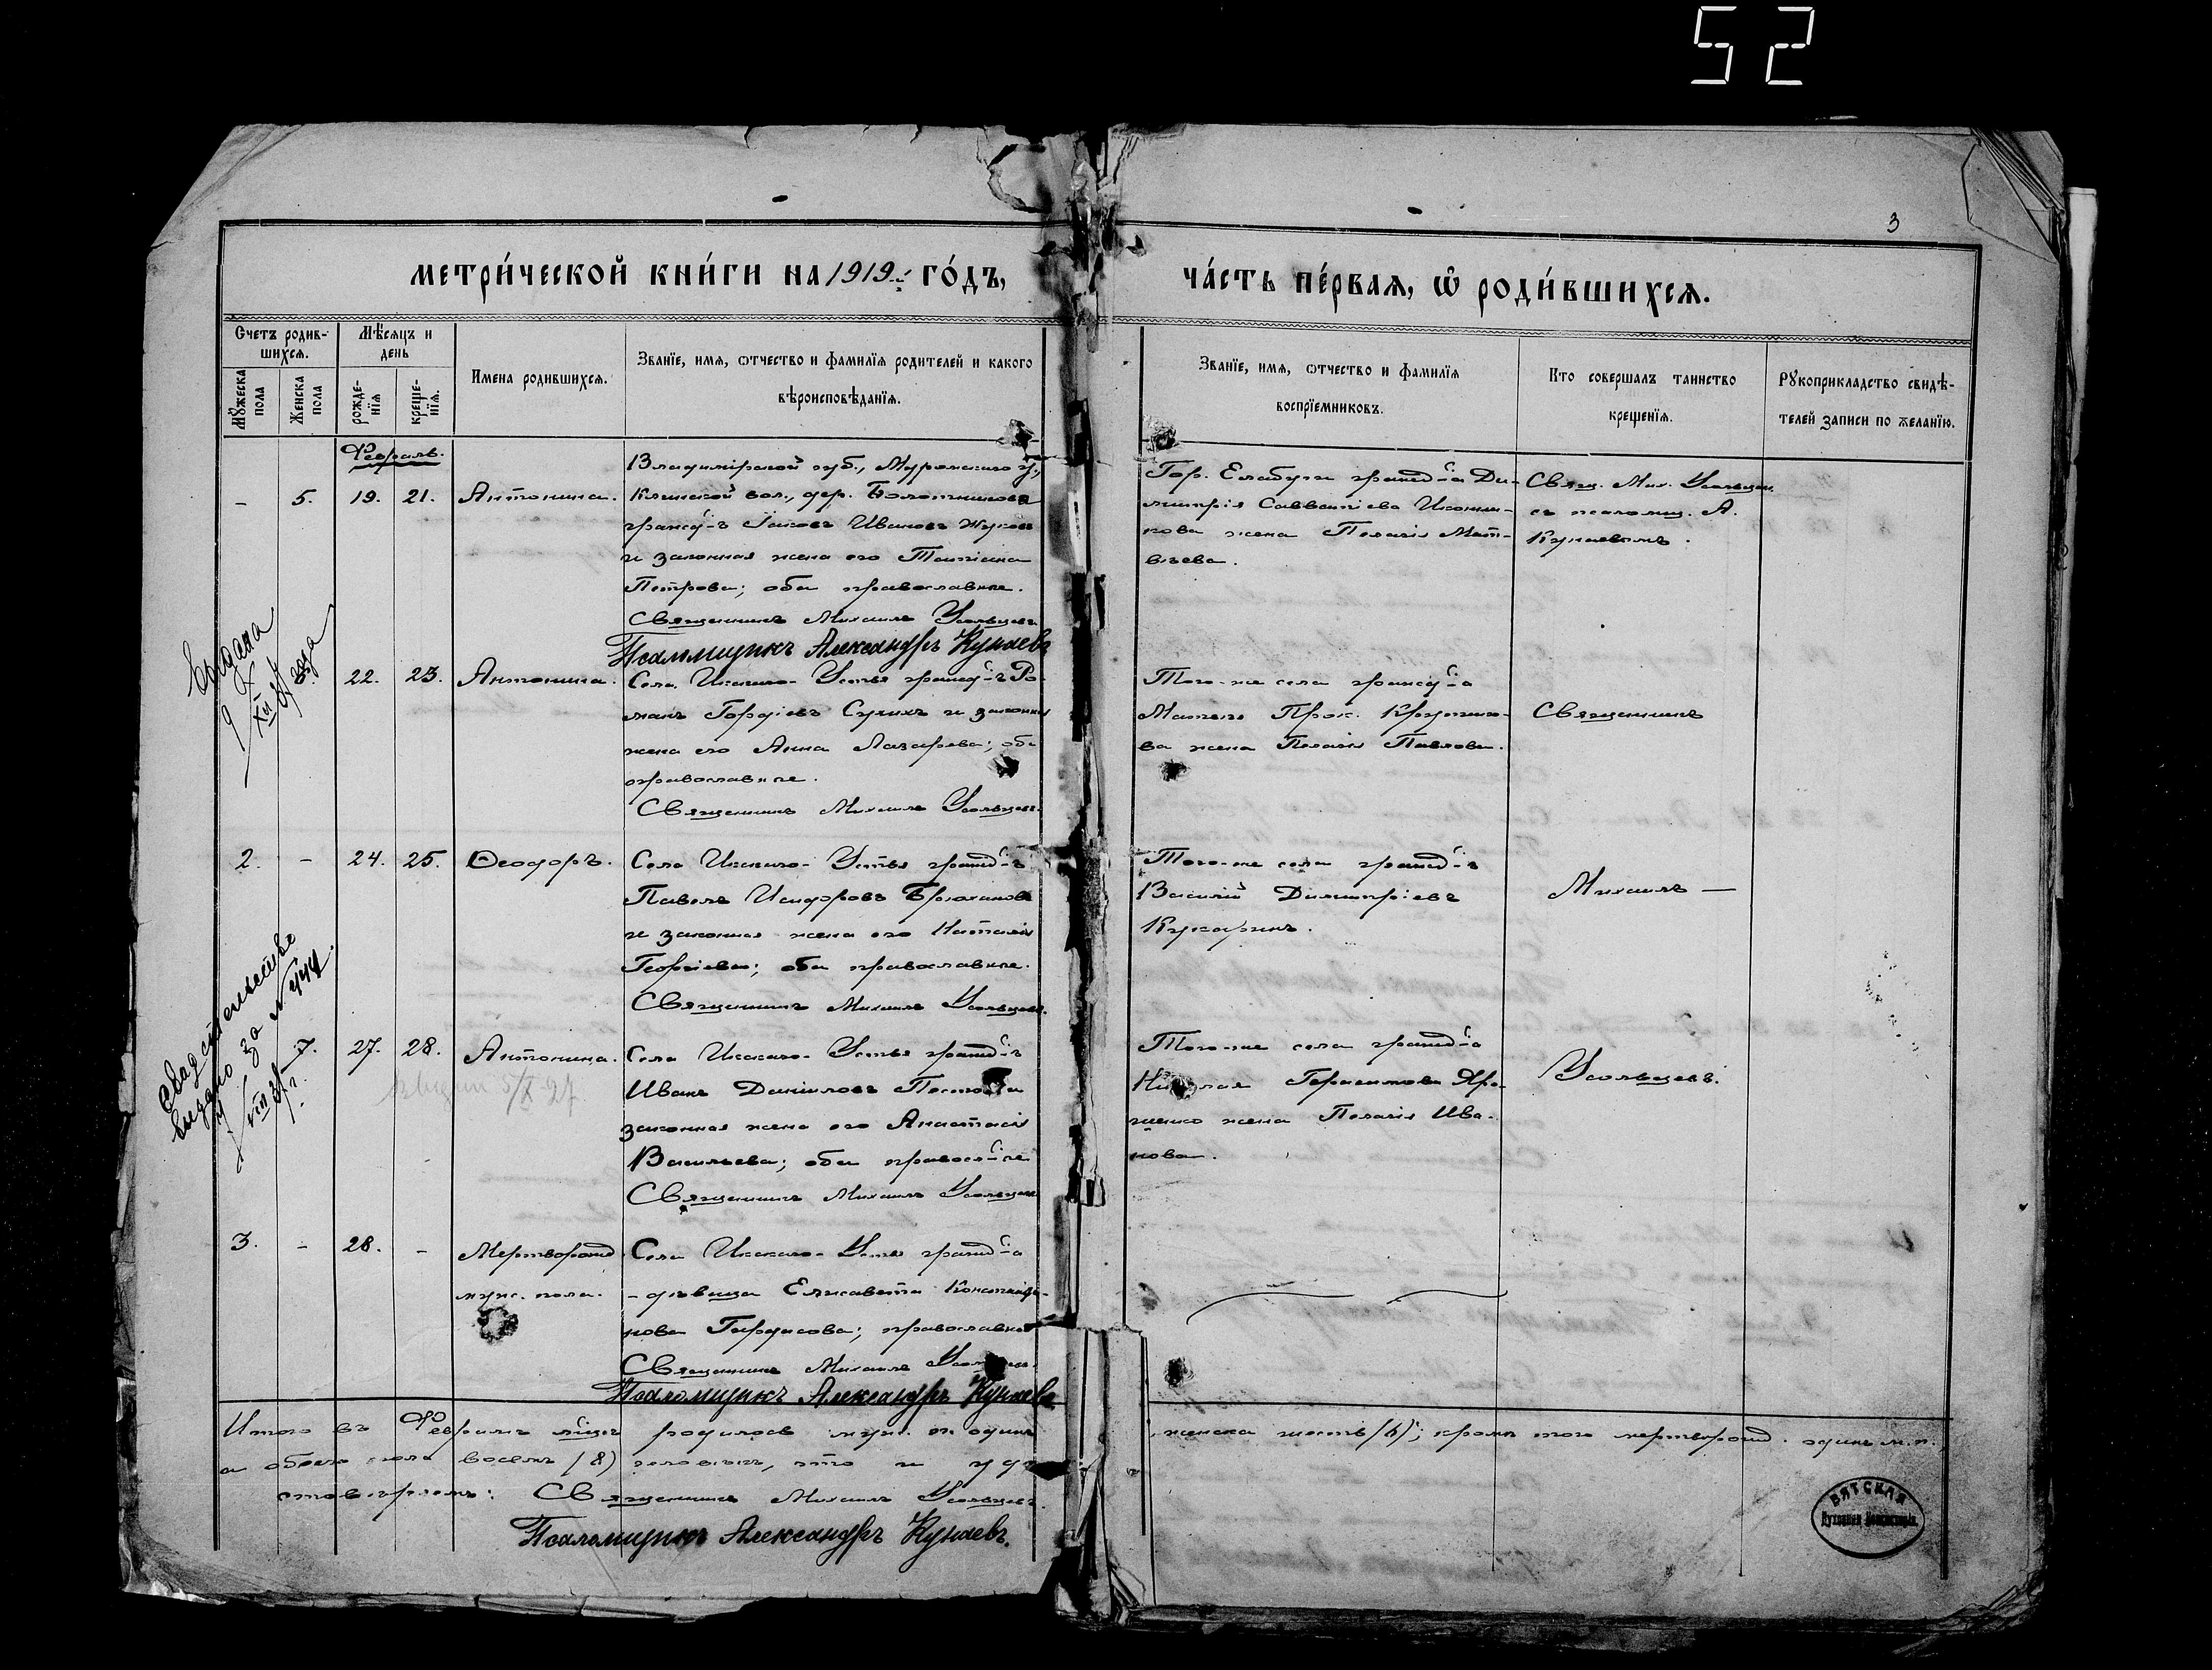 52
3
МЕТРИ́ЧЕСКОЙ КНИ́ГИ НА 1919 й ГО́ДЪ,
ЧА́СТЬ ПЕ́РВАЯ, Ѡ РОДИ́ВШИХСЯ.
Счетъ родив-
шихся.
Мꙋжеска
пола
Женска
пола
Мѣсяцъ и
день
рожде-
нїя
креще-
нїя.
Имена родившихся.
Званїе, имя, ѡтчество и фамилїя родителей и какого
вѣроисповѣданїя.
Званїе, имя, ѡтчество и фамилїя
воспрїемниковъ.
Кто совершалъ таинство
крещенїя.
Рꙋкоприкладство свидѣ-
телей записи по желанїю.
Февраль.
- 5. 19. 21. Антонина.
Владимірской губ., Муромскаго у.,
вол., дер.
Іаковъ Ивановъ Жуковъ
и законная жена его Татіана
Петрова; оба православные.
Священникъ Михаилъ Усольцевъ
Псаломщикъ Александръ Кунаевъ
Гор. Елабуги гражд-а Ди-
митрія Савватіева
жена Пелагія Мат-
вѣева.
Свящ. Мих. Усольцев
съ псаломщ. А.
Кунаевымъ.
Выдана
22. 23. Антонина.
Села Икскаго-Устья гражд-ъ Ро-
манъ Гордіевъ Сухихъ и законная
жена его Анна Лазарева; оба
православные.
Священникъ Михаилъ Усольцевъ.
Того-же села гражд-а
Матвея Прок.
ва жена Пелагія Павлова.
Священникъ
2. - 24. 25. Ѳеодоръ.
Села Икскаго-Устья гражд-ъ
Павелъ Исидоровъ Брюхановъ
и законная жена его Наталія
Георгіева; оба православные.
Священникъ Михаилъ Усольцевъ.
Того-же села гражд-ъ
Василій Димитріевъ
Кукаринъ.
Михаилъ —
Свидетельство
выдано за №
7. 27. 28. Антонина.
Села Икскаго-Устья гражд-ъ
Иванъ Даниловъ
законная жена его Анастасія
Васильева; оба правосл-ые
Священникъ Михаилъ Усольцевъ
Того-же села гражд-а
Николая Герасимова
жена Пелагія Ива-
нова.
Усольцевъ.
3. - 28. - Мертворожд.
муж. пола.
Села Икскаго-Устья гражд-а
-дѣвица Елисавета Константи-
нова; православная
Священникъ Михаилъ Усольцевъ.
Псаломщикъ Александръ Кунаевъ
Итого въ Февралѣ мѣсяцѣ родилось муж. п. одинъ
женска шесть (6); кромѣ того мертворожд. одинъ м.п.
а обоего пола восемь (8) человѣкъ, что и удо-
стовѣряемъ: Священникъ Михаилъ Усольцевъ.
Псаломщикъ Александръ Кунаевъ.
ВЯТСКАЯ
Духовная Консисторія